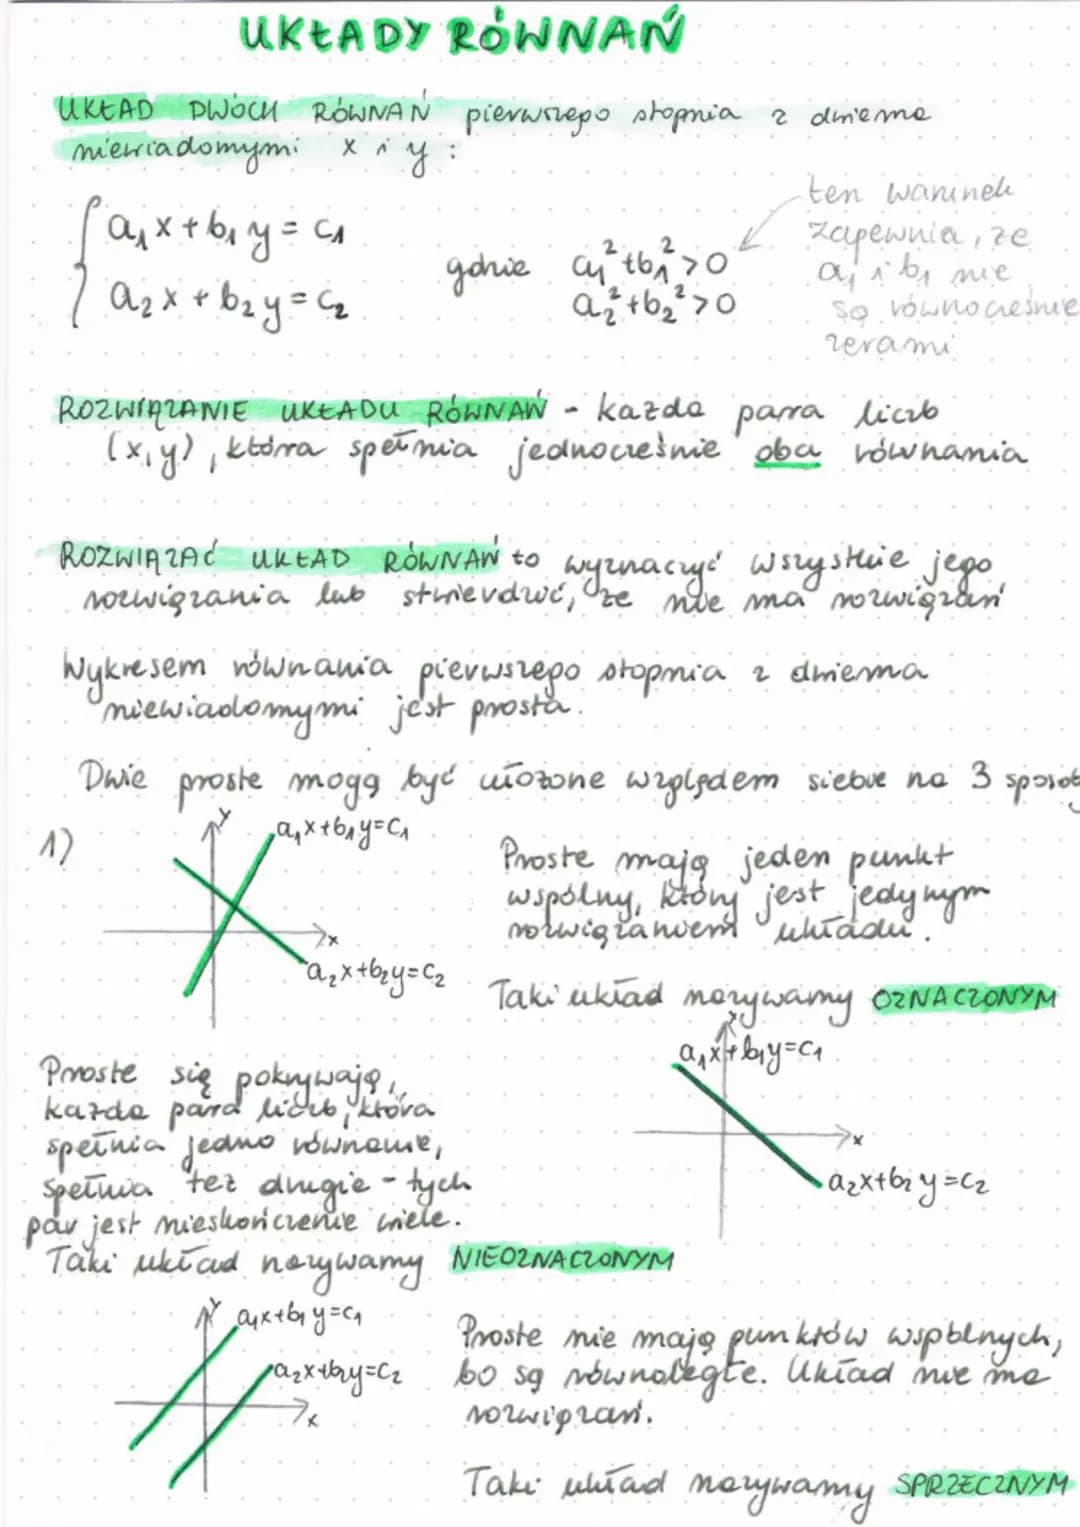 UKŁADY RÓWNAŃ
UKŁAD DWÓCH RÓWNAŃ pierwszego stopnia z dwiema
niewiadomymi x i y :
a₁x + b₁y = c₁
a₂x + b₂y = c₂
gdzie a₁² + b₁² > 0
a₂² + b₂² > 0
ten warunek
zapewnia, że
a₁ i b₁ nie
są równocześnie
zerami
ROZWIĄZANIE UKŁADU RÓWNAŃ - każda para liczb
(x, y), która spełnia jednocześnie oba równania
ROZWIĄZAĆ UKŁAD RÓWNAŃ to wyznaczyć wszystkie jego
rozwiązania lub stwierdzić, że nie ma rozwiązań
Wykresem równania pierwszego stopnia z dwiema
niewiadomymi jest prosta.
Dwie proste mogą być ułożone względem siebie na 3 sposob
1)
y
a₁x+b₁y=c₁
x
a₂x+b₂y=c₂
Proste mają jeden punkt
wspólny, który jest jedynym
rozwiązaniem układu.
Taki układ nazywamy OZNACZONYM
y
a₁x+b₁y=c₁
x
a₂x+b₂y=c₂
Proste się pokrywają,
każda para liczb, która
spełnia jedno równanie,
spełnia też drugie - tych
par jest nieskończenie wiele.
Taki układ nazywamy NIEOZNACZONYM
y
a₁x+b₁y=c₁
a₂x+b₂y=c₂
x
Proste nie mają punktów wspólnych,
bo są równoległe. Układ nie ma
rozwiązań.
Taki układ nazywamy SPRZECZNYM